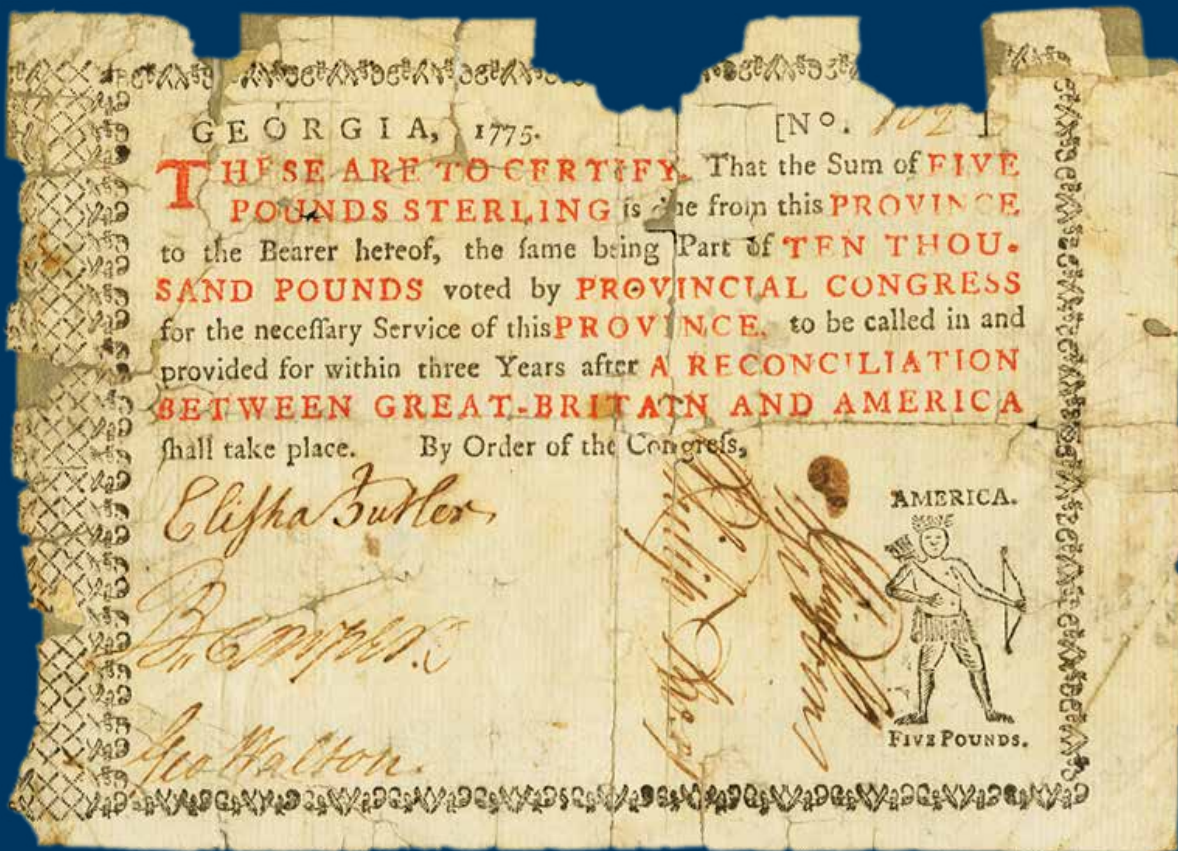 GEORGIA, 1775. [No. ]
THESE ARE TO CERTIFY, That the Sum of FIVE
POUNDS STERLING is due from this PROVINCE
to the Bearer hereof, the ſame being Part of TEN THOU-
SAND POUNDS voted by PROVINCIAL CONGRESS
for the neceſſary Service of this PROVINCE, to be called in and
provided for within three Years after A RECONCILIATION
BETWEEN GREAT-BRITAIN AND AMERICA
ſhall take place. By Order of the Congreſs,
Eliſha Butler
Geo Walton.
Philip Box
AMERICA.
FIVE POUNDS.